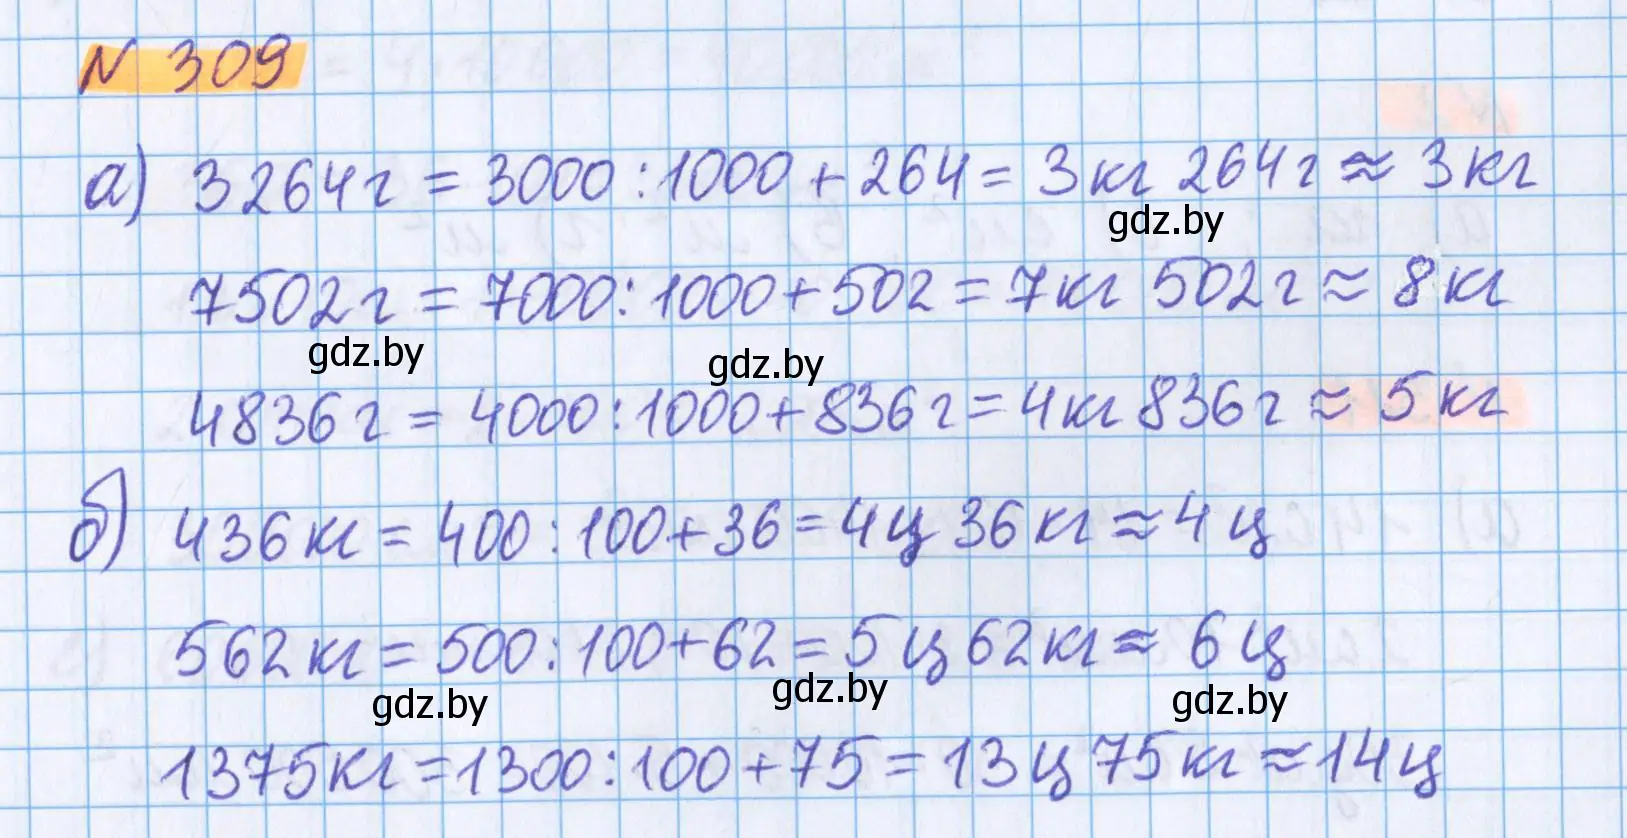 N 309
а) 3264г = 3000 : 1000 + 264 = 3кг 264г ≈ 3кг
gdz.by
7502г = 7000 : 1000 + 502 = 7кг 502г ≈ 8кг
gdz.by gdz.by
4836г = 4000 : 1000 + 836г = 4кг 836г ≈ 5кг
б) 436кг = 400 : 100 + 36 = 4ц 36кг ≈ 4ц
562кг = 500 : 100 + 62 = 5ц 62кг ≈ 6ц
gdz.by gdz.by gdz.by
1375кг = 1300 : 100 + 75 = 13ц 75кг ≈ 14ц